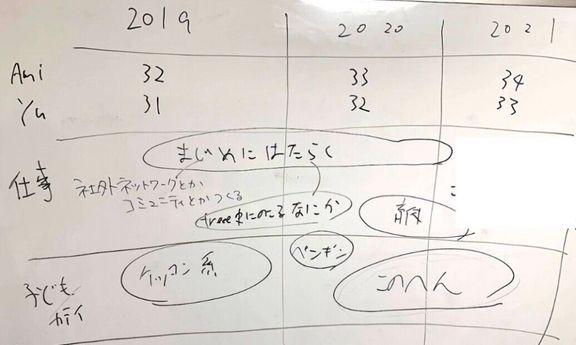 2019 2020 2021
Ami 32 33 34
Yu 31 32 33
まじめにはたらく
仕事 社外ネットワークとか
コミュニティとかつくる
freee史にのこるなにか
ペンギン
子ども ケッコン系 このへん